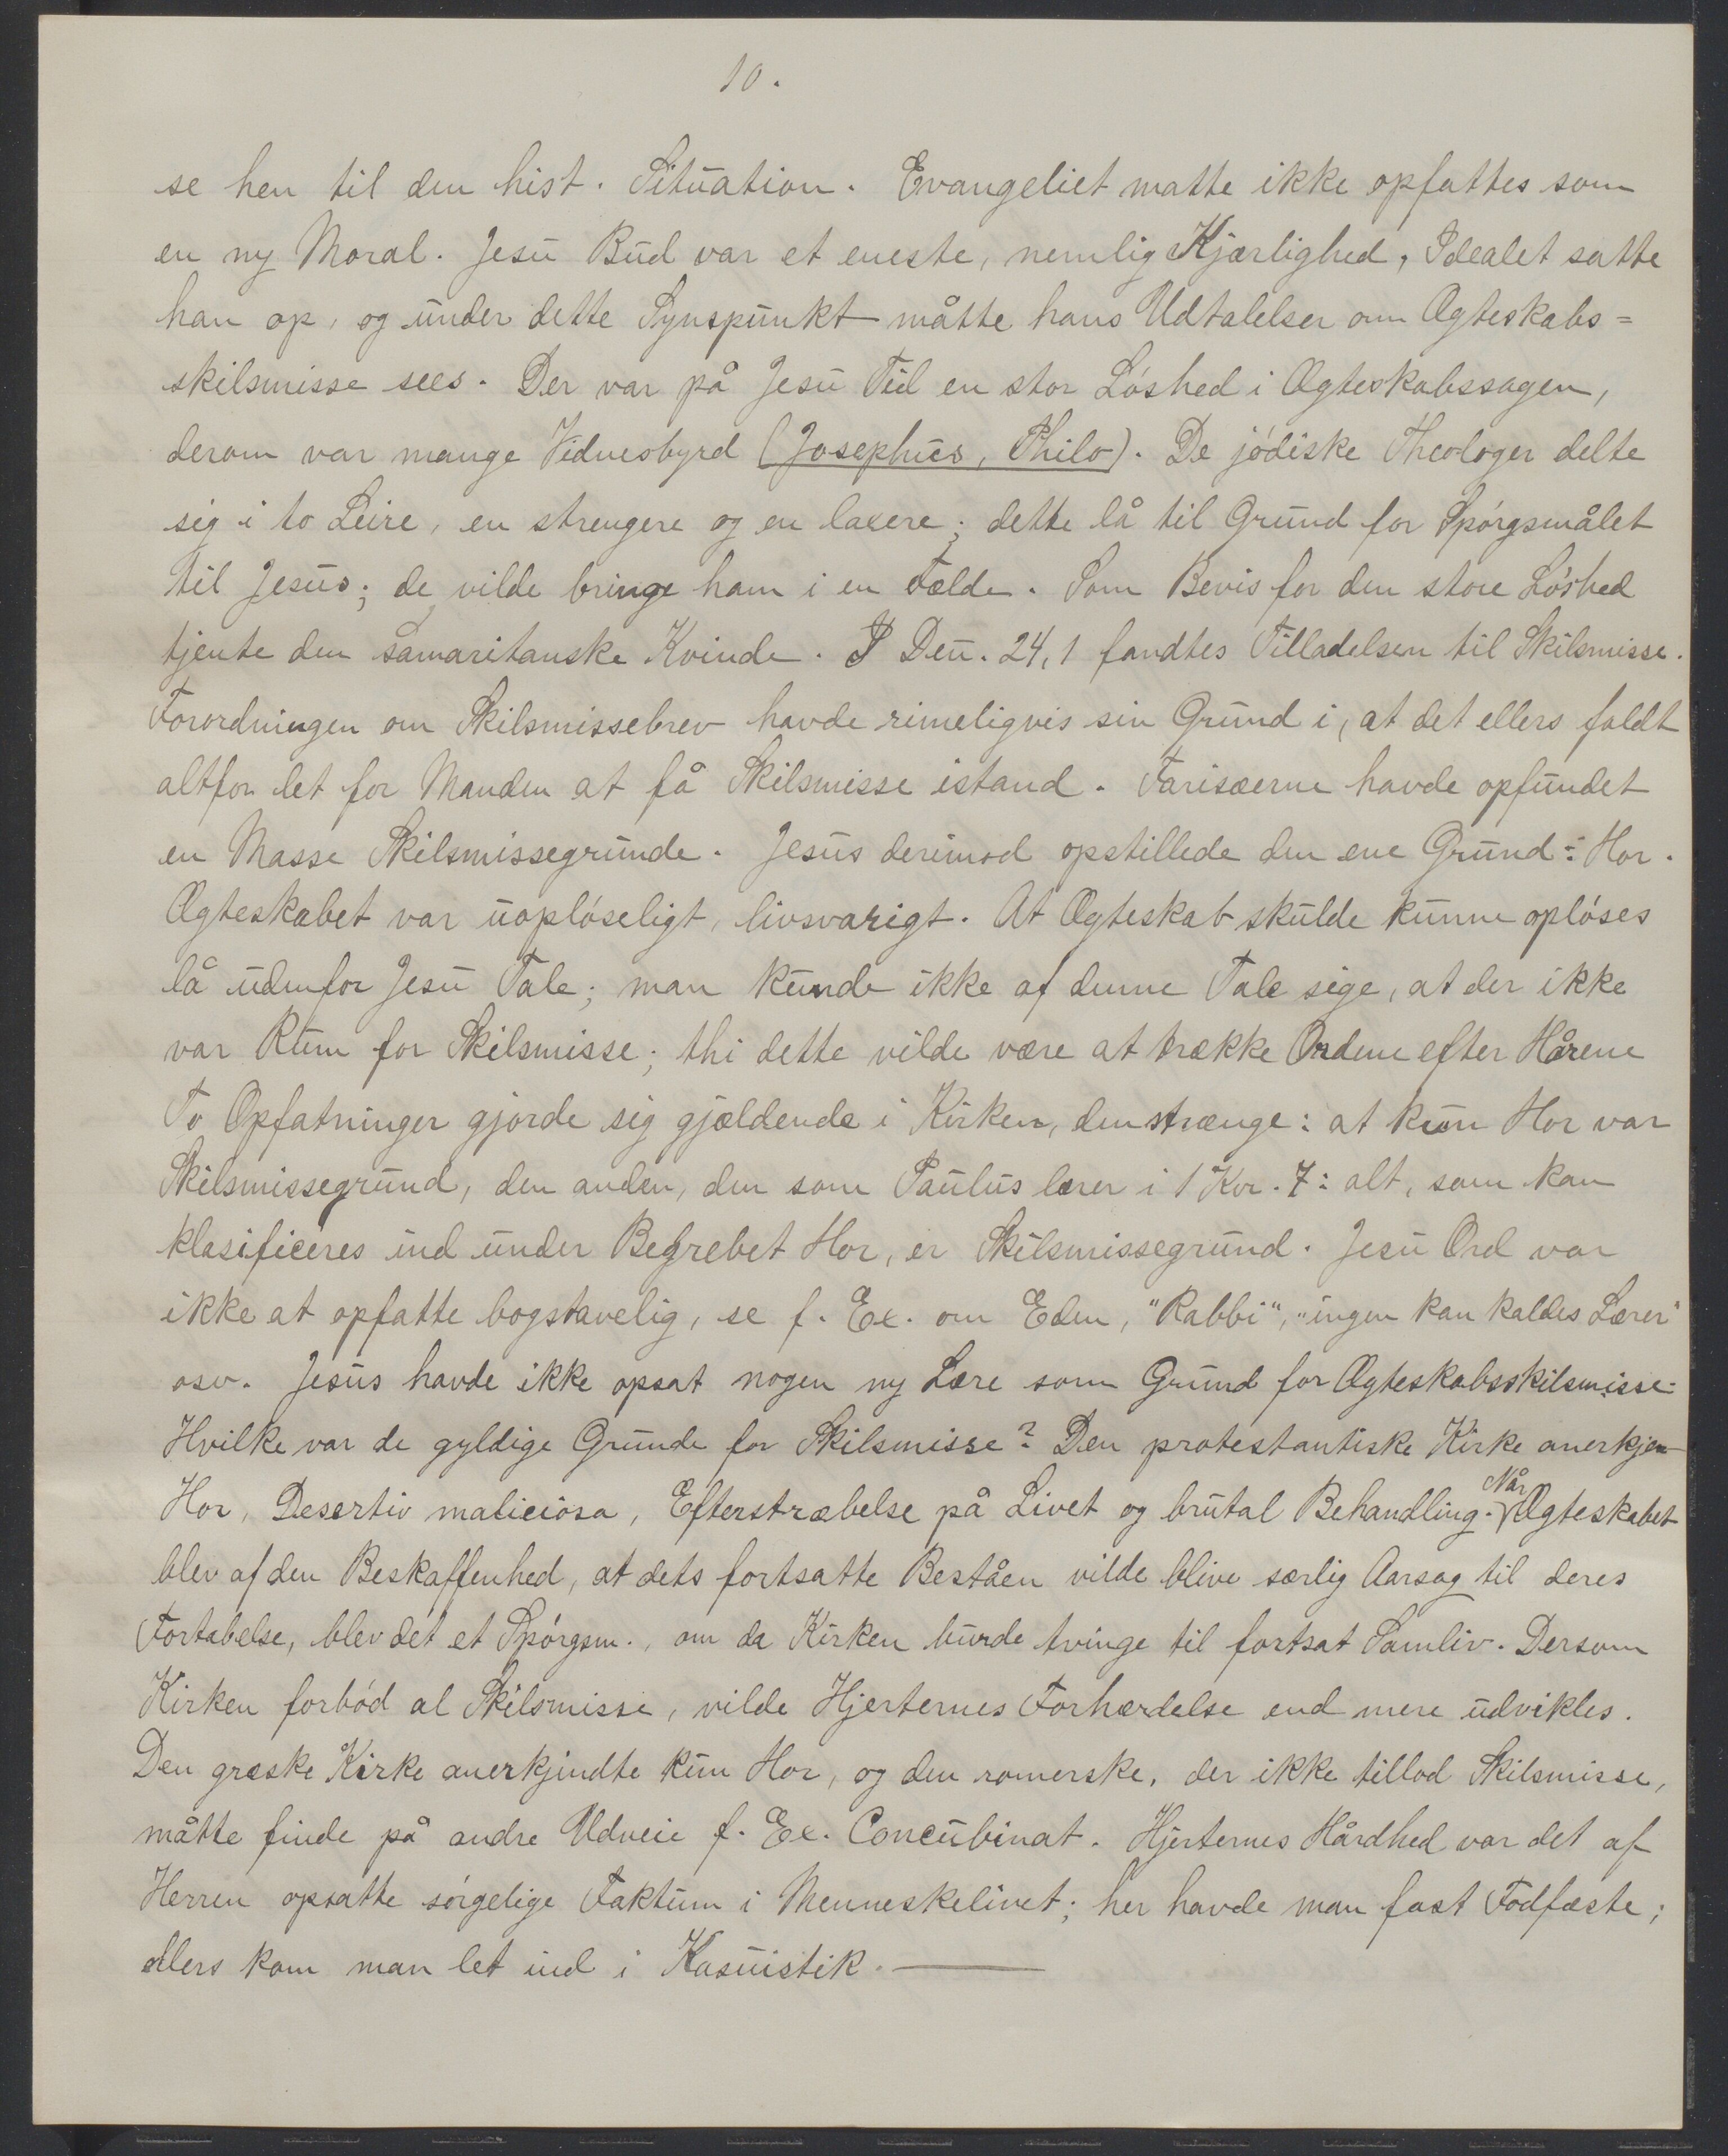 10.
se hen til den hist. Situation. Evangeliet matte ikke opfattes som
en ny Moral. Jesu Bud var et eneste, nemlig Kjærlighed, Idealet satte
han op, og under dette Synspunkt måtte hans Udtalelser om Ægteskabs=
skilsmisse sees. Der var på Jesu Tid en stor Løshed i Ægteskabssagen,
derom var mange Vidnesbyrd (Josephus, Philo). De jødiske Theologer delte
sig i to Leire, en strengere og en laxere; dette lå til Grund for Spørgsmålet
til Jesus; de vilde bringe ham i en Fælde. Som Bevis for den store Løshed
tjente den samaritanske Kvinde. I Deu. 24,1 fandtes Tilladelsen til Skilsmisse.
Forordningen om Skilsmissebrev havde rimeligvis sin Grund i, at det ellers faldt
altfor let for Manden at få Skilsmisse istand. Farisæerne havde opfundet
en Masse Skilsmissegrunde. Jesus derimod opstillede den ene Grund: Hor.
Ægteskabet var uopløseligt, livsvarigt. At Ægteskab skulde kunne opløses
lå udenfor Jesu Tale; man kunde ikke af denne Tale sige, at der ikke
var Rum for Skilsmisse; thi dette vilde være at trække Ordene efter Hårene
To Opfatninger gjorde sig gjældende i Kirken, den strænge: at kun Hor var
Skilsmissegrund, den anden, den som Paulus lærer i 1 Kor. 7: alt, som kan
klasificeres ind under Begrebet Hor, er Skilsmissegrund. Jesu Ord var
ikke at opfatte bogstavelig, se f. Ex. om Eden, "Rabbi", "ingen kan kaldes Lærer"
osv. Jesus havde ikke opsat nogen ny Lære som Grund for Ægteskabsskilsmisse.
Hvilke var de gyldige Grunde for Skilsmisse? Den protestantiske Kirke anerkjen
Hor, Desertio maliciosa, Efterstræbelse på Livet og brutal Behandling. Når Ægteskabet
blev af den Beskaffenhed, at dets fortsatte Beståen vilde blive særlig Aarsag til deres
Fortabelse, blev det et Spørgsm., om da Kirken burde tvinge til fortsat Samliv. Dersom
Kirken forbød al Skilsmisse, vilde Hjerternes Forhærdelse end mere udvikles.
Den græske Kirke anerkjendte kun Hor, og den romerske, der ikke tillod Skilsmisse,
måtte finde på andre Udveie f. Ex. Concubinat. Hjerternes Hårdhed var det af
Herren opsatte sørgelige Faktum i Menneskelivet; her havde man fast Fodfæste;
ellers kom man let ind i Kasuistik.